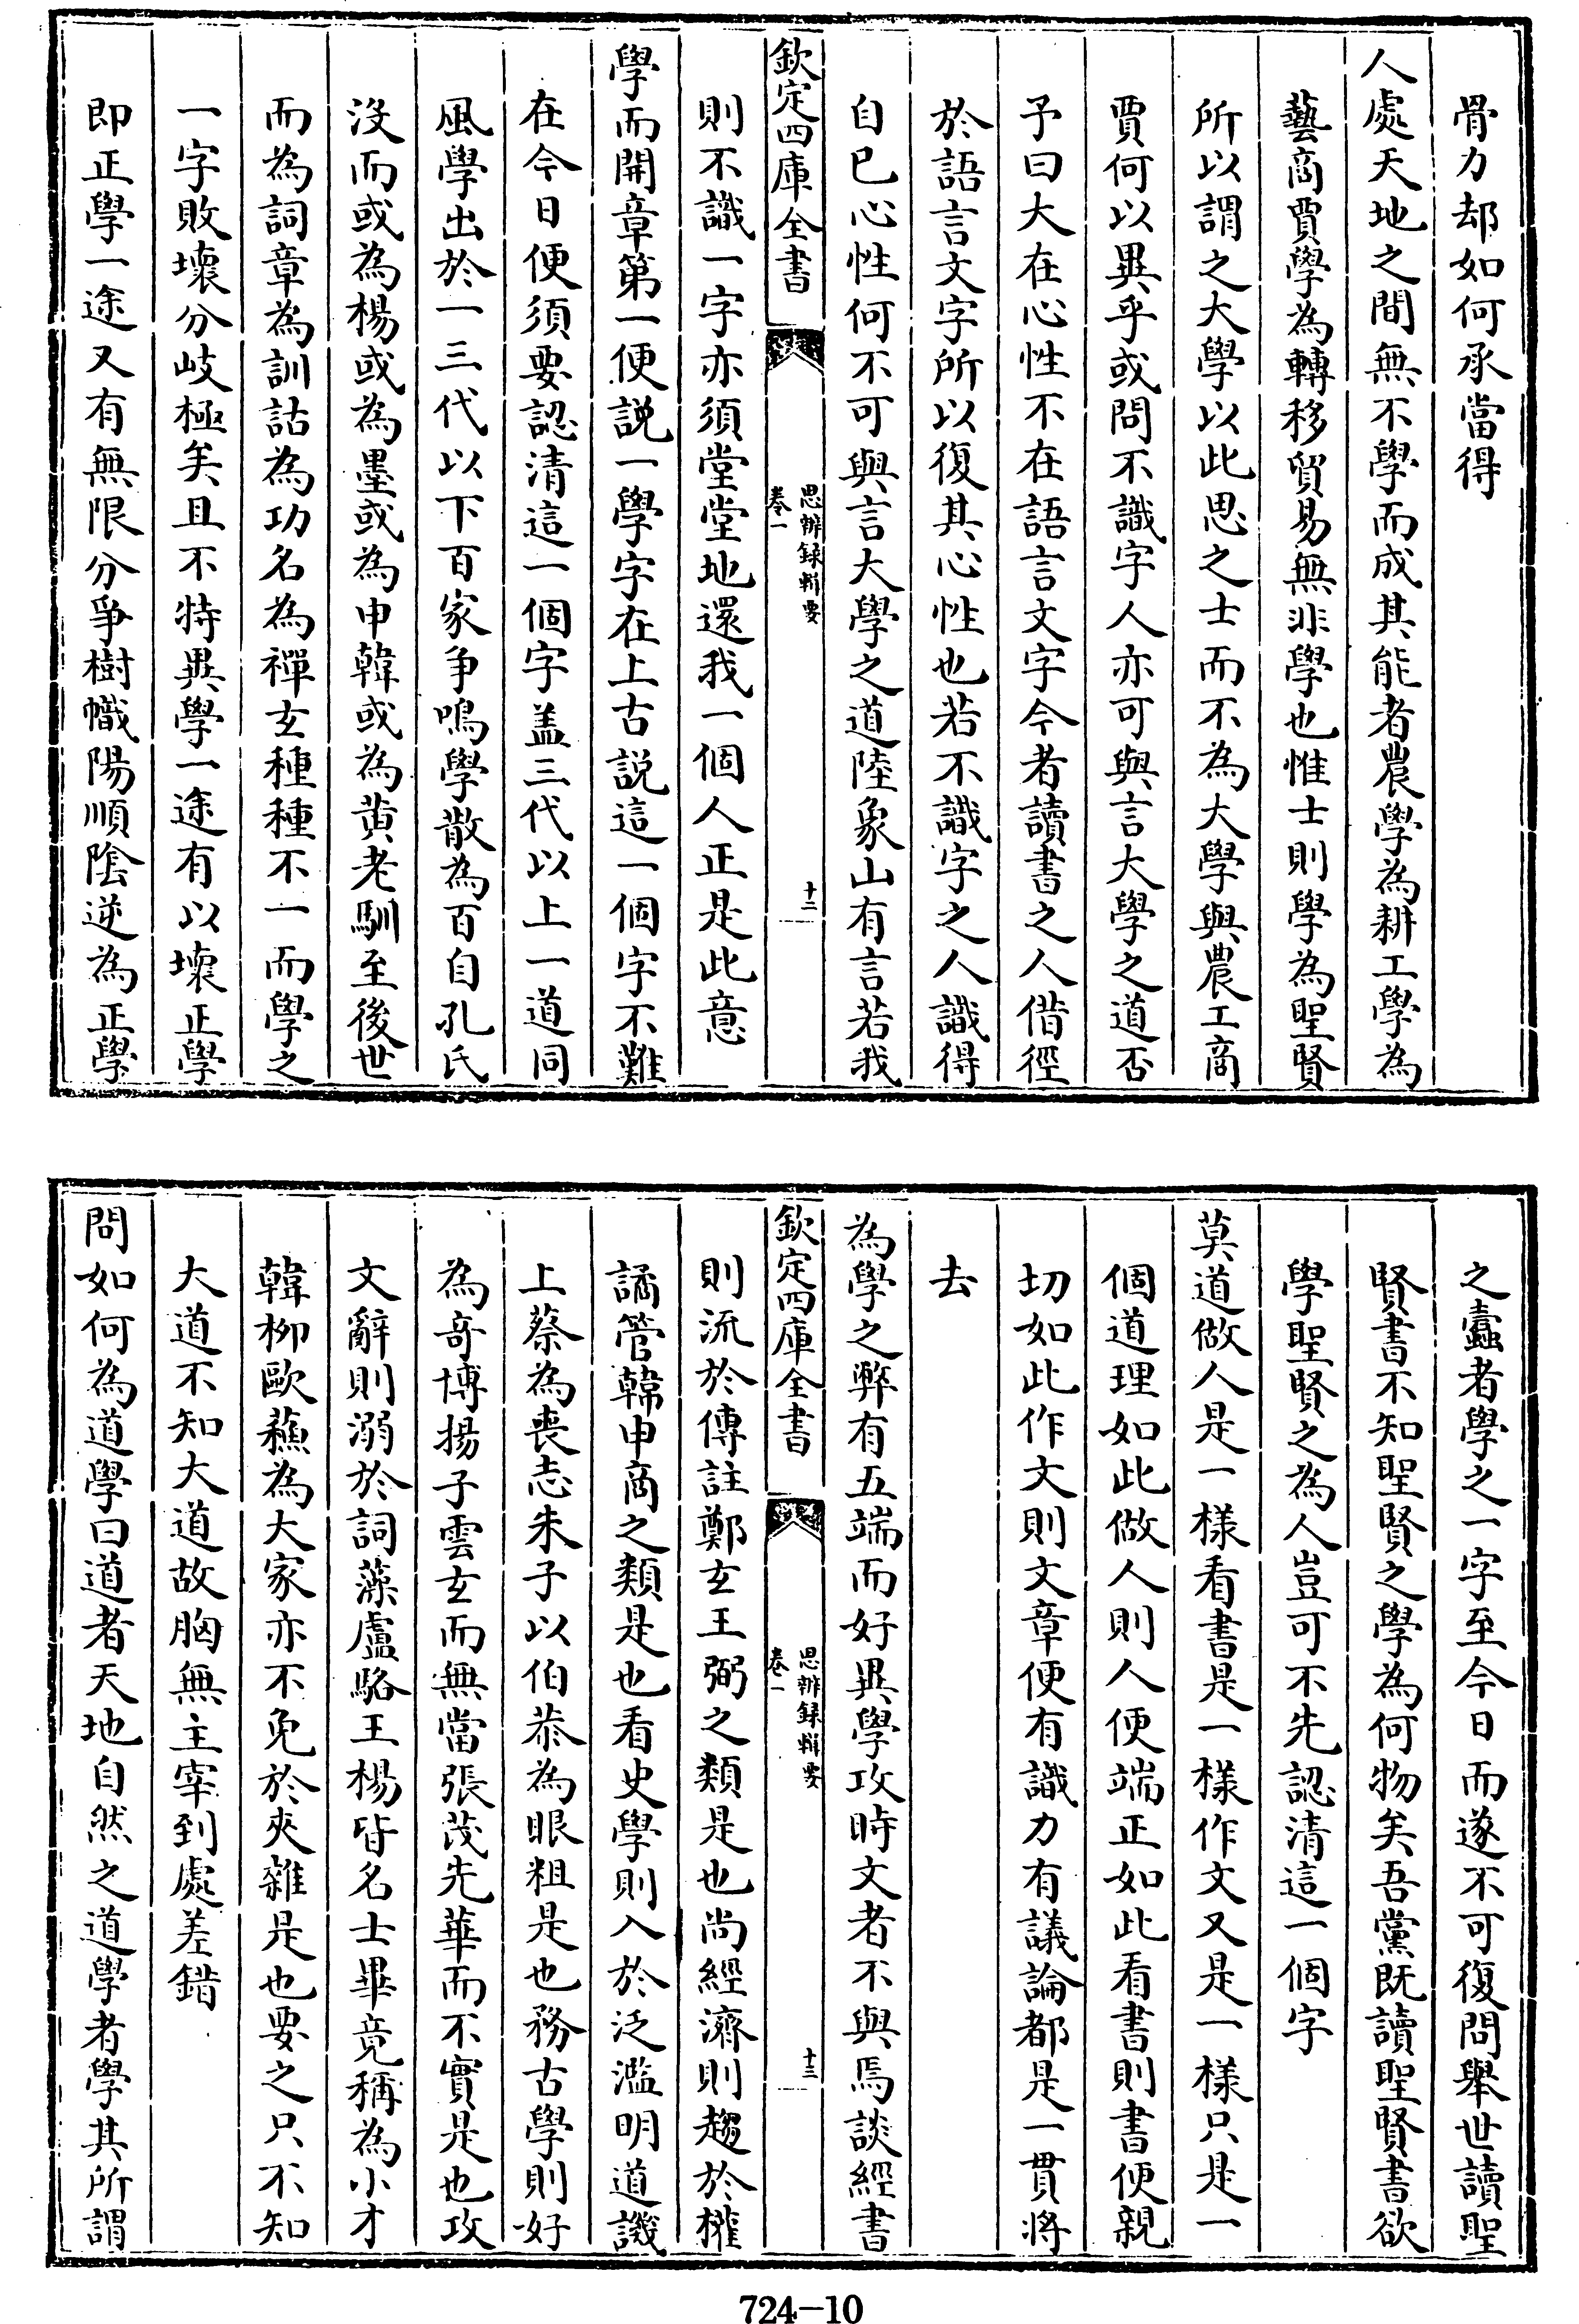 骨力却如何承當得
人處天地之間無不學而成其能者農學為耕工學為
藝商賈學為轉移貿易無非學也惟士則學為聖賢
所以謂之大學以此思之士而不為大學與農工商
賈何以異乎或問不識字人亦可與言大學之道否
予曰大在心性不在語言文字今者讀書之人借徑
於語言文字所以復其心性也若不識字之人識得
自己心性何不可與言大學之道陸象山有言若我
欽定四庫全書
思辨録輯要
卷一
十二
則不識一字亦須堂堂地還我一個人正是此意
學而開章第一便説一學字在上古説這一個字不難
在今日便須要認清這一個字盖三代以上一道同
風學出於一三代以下百家争鳴學散為百自孔氏
没而或為楊或為墨或為申韓或為黄老馴至後世
而為詞章為訓詁為功名為禪玄種種不一而學之
一字敗壞分岐極矣且不特異學一途有以壞正學
即正學一途又有無限分爭樹幟陽順陰逆為正學
之蠹者學之一字至今日而遂不可復問舉世讀聖
賢書不知聖賢之學為何物矣吾黨既讀聖賢書欲
學聖賢之為人豈可不先認清這一個字
莫道做人是一樣看書是一樣作文又是一樣只是一
個道理如此做人則人便端正如此看書則書便親
切如此作文則文章便有識力有議論都是一貫將
去
為學之弊有五端而好異學攻時文者不與焉談經書
欽定四庫全書
思辨録輯要
卷一
十三
則流於傳註鄭玄王弼之類是也尚經濟則趨於權
譎管韓申商之類是也看史學則入於泛濫明道譏
上蔡為喪志朱子以伯恭為眼粗是也務古學則好
為奇博揚子雲玄而無當張茂先華而不實是也攻
文辭則溺於詞藻盧駱王楊皆名士畢竟稱為小才
韓柳歐蘇為大家亦不免於夾雜是也要之只不知
大道不知大道故胸無主宰到處差錯
問如何為道學曰道者天地自然之道學者學其所謂
724-10